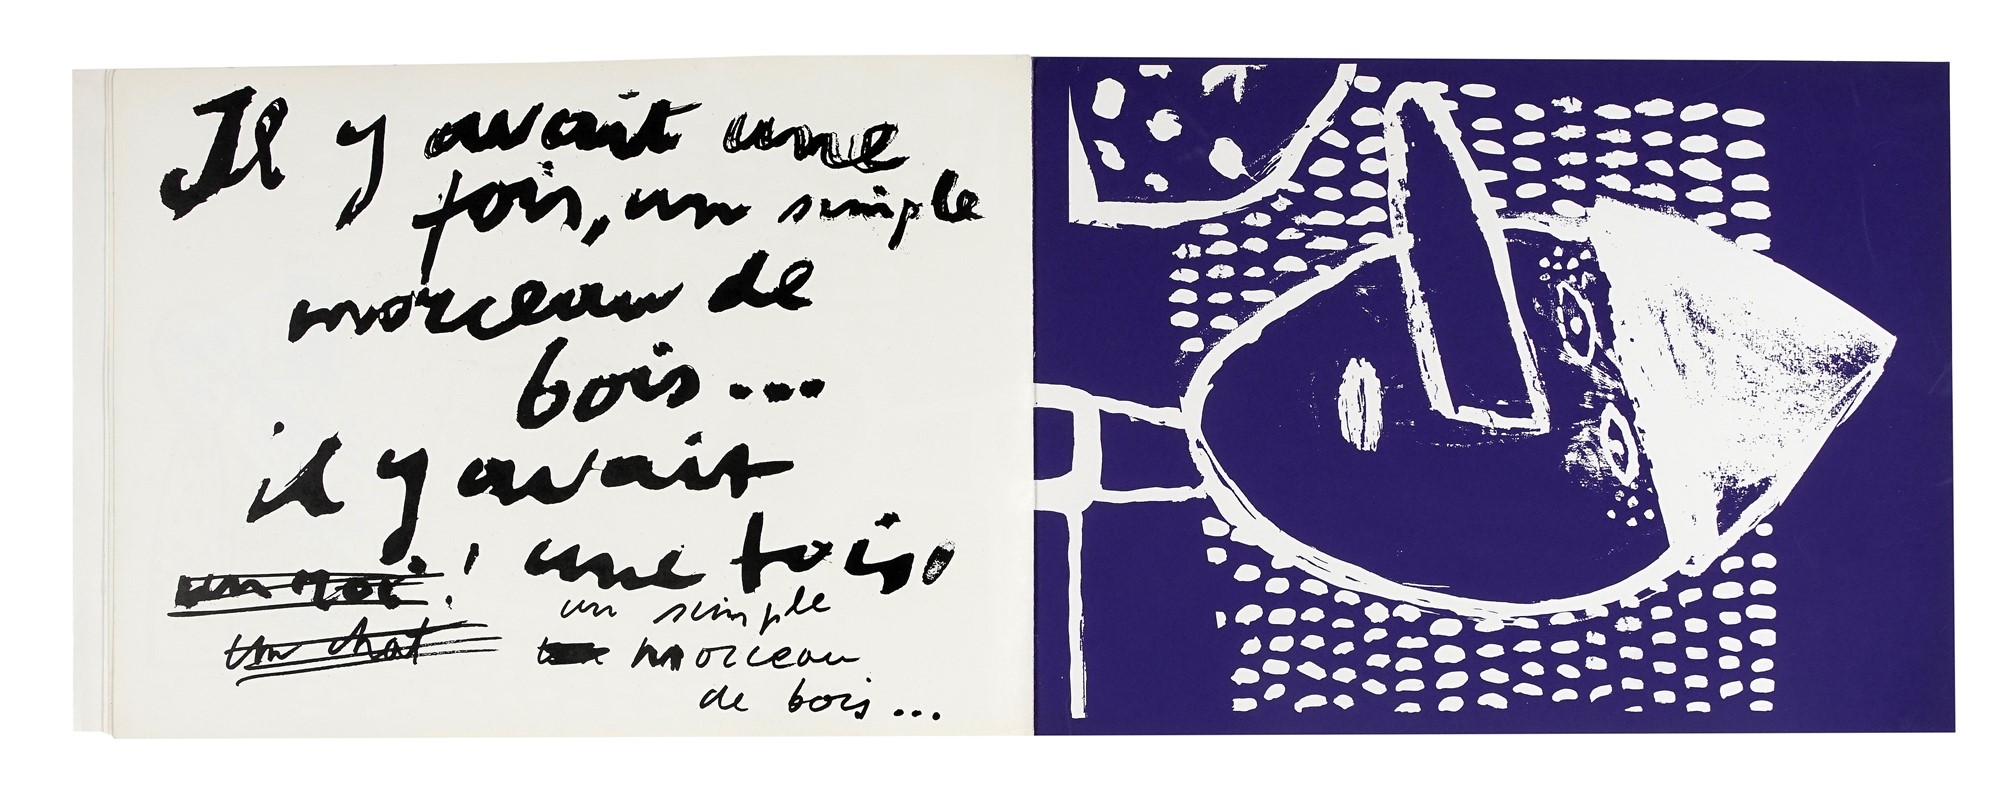 Il y avait une
fois, un simple
morceau de
bois...
il y avait
un roi! ! une fois
un simple
un chat morceau
de bois...